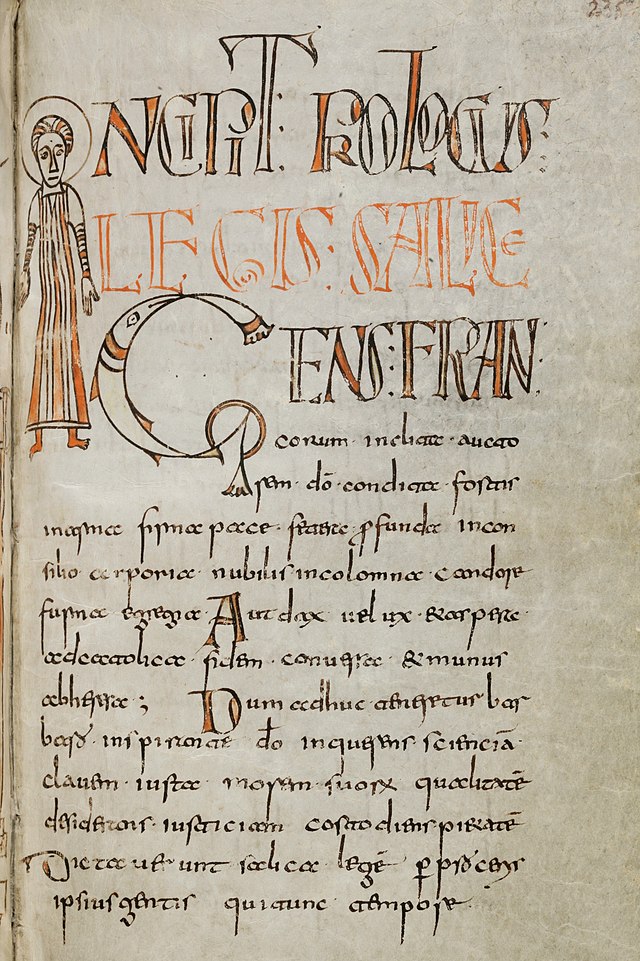 235
INCIPIT PROLOGUS
LEGIS SALICE
GENS FRAN
corum inclicta aucto
rem dō condicta fortis
in arma firma pace fetera profunda in con
silio corporia nobilis incolomna candore
forma egregia Audax uelux & aspera
ad catolica fidem conuersa & munus
ab heresa ; Dum adhuc teneretus bar
bara inspirante dō inquerens sciencia
clauem iusta morem suorum qualitatē
desiderans iusticiam costodiens pietatē
Dictauerunt salica legē per proceres
ipsius gentis qui tunc tempore